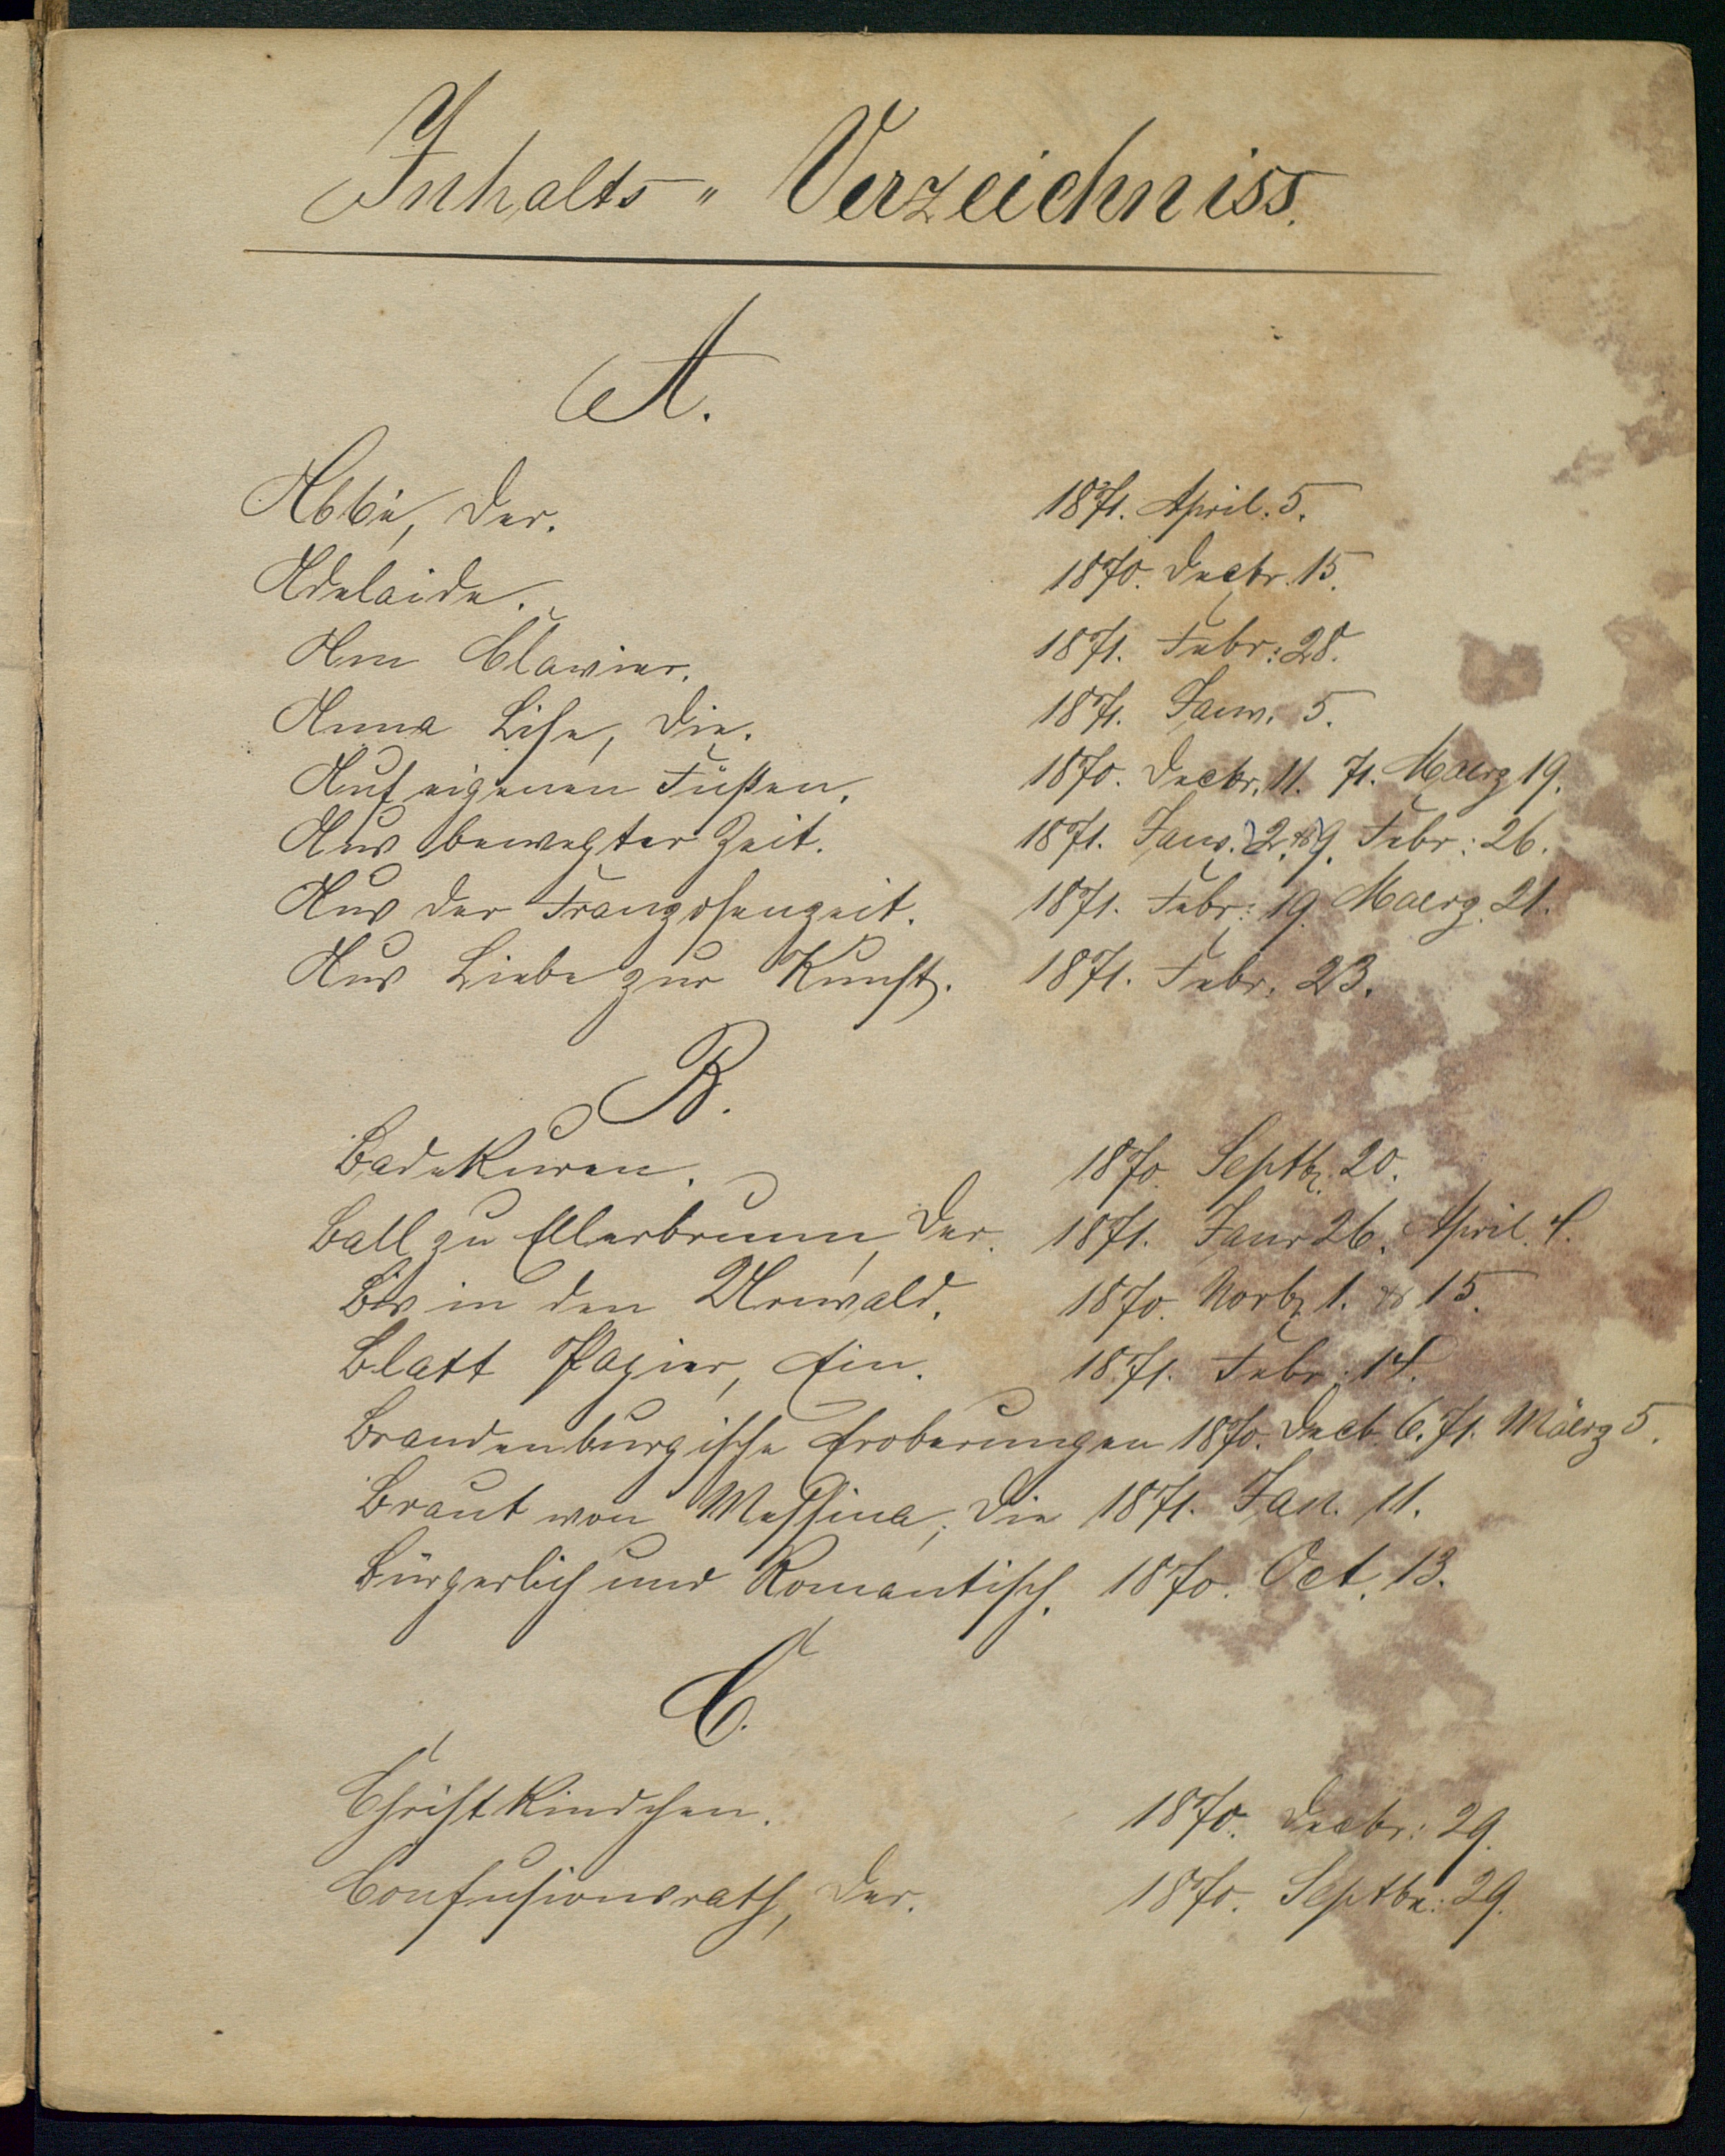 Inhalts-Verzeichniss.
A.
Abbé, der. 1871. April. 5.
Adelaide. 1870. Decbr. 15.
Am Clavier. 1871. Febr: 28.
Anna Lise, die. 1871. Janr. 5.
Auf eigenen Füßen. 1870. Decbr. 11. 71. Maerz 19.
Aus bewegter Zeit. 1871. Janr. 2. & 9. Febr: 26.
Aus der Franzosenzeit. 1871. Febr: 19. Maerz. 21.
Aus Liebe zur Kunst. 1871. Febr. 23.
B.
Badekuren. 1870. Septbr. 20.
Ball zu Ellerbrunn, Der. 1871. Janr 26. April. 4.
Bis in den Urwald. 1870. Novbr 1. & 15.
Blatt Papier, Ein. 1871. Febr: 14.
Brandenburgische Eroberungen 1870. Decb. 6. 71. Mäerz 5.
Braut von Messina, die 1871. Jan. 11.
Bürgerlich und Romantisch. 1870. Oct. 13.
C.
Christkindchen. 1870. Decbr: 29.
Confusionsrath, der. 1870. Septbr: 29.